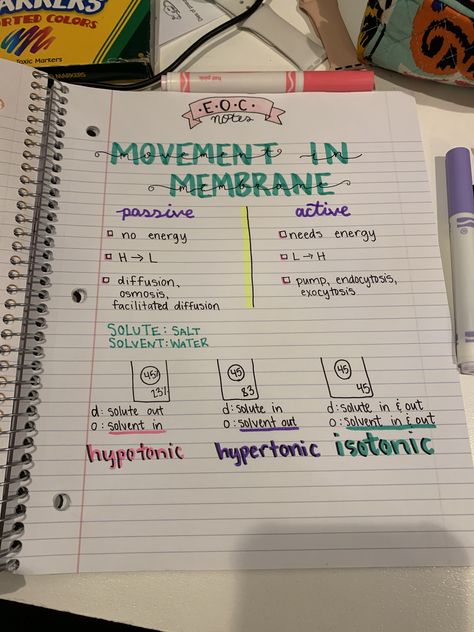 MARKERS
ORTED COLORS
oxic Markers
hot pink
E.O.C.
notes
MOVEMENT IN
movement in
MEMBRANE
membrane
passive
active
no energy
needs energy
H → L
L → H
diffusion,
osmosis,
facilitated diffusion
pump, endocytosis,
exocytosis
SOLUTE: SALT
SOLVENT: WATER
45%
23%
45
83
45
45
d: solute out
O: solvent in
hypotonic
d: solute in
O: solvent out
hypertonic
d: solute in & out
O: solvent in & out
isotonic